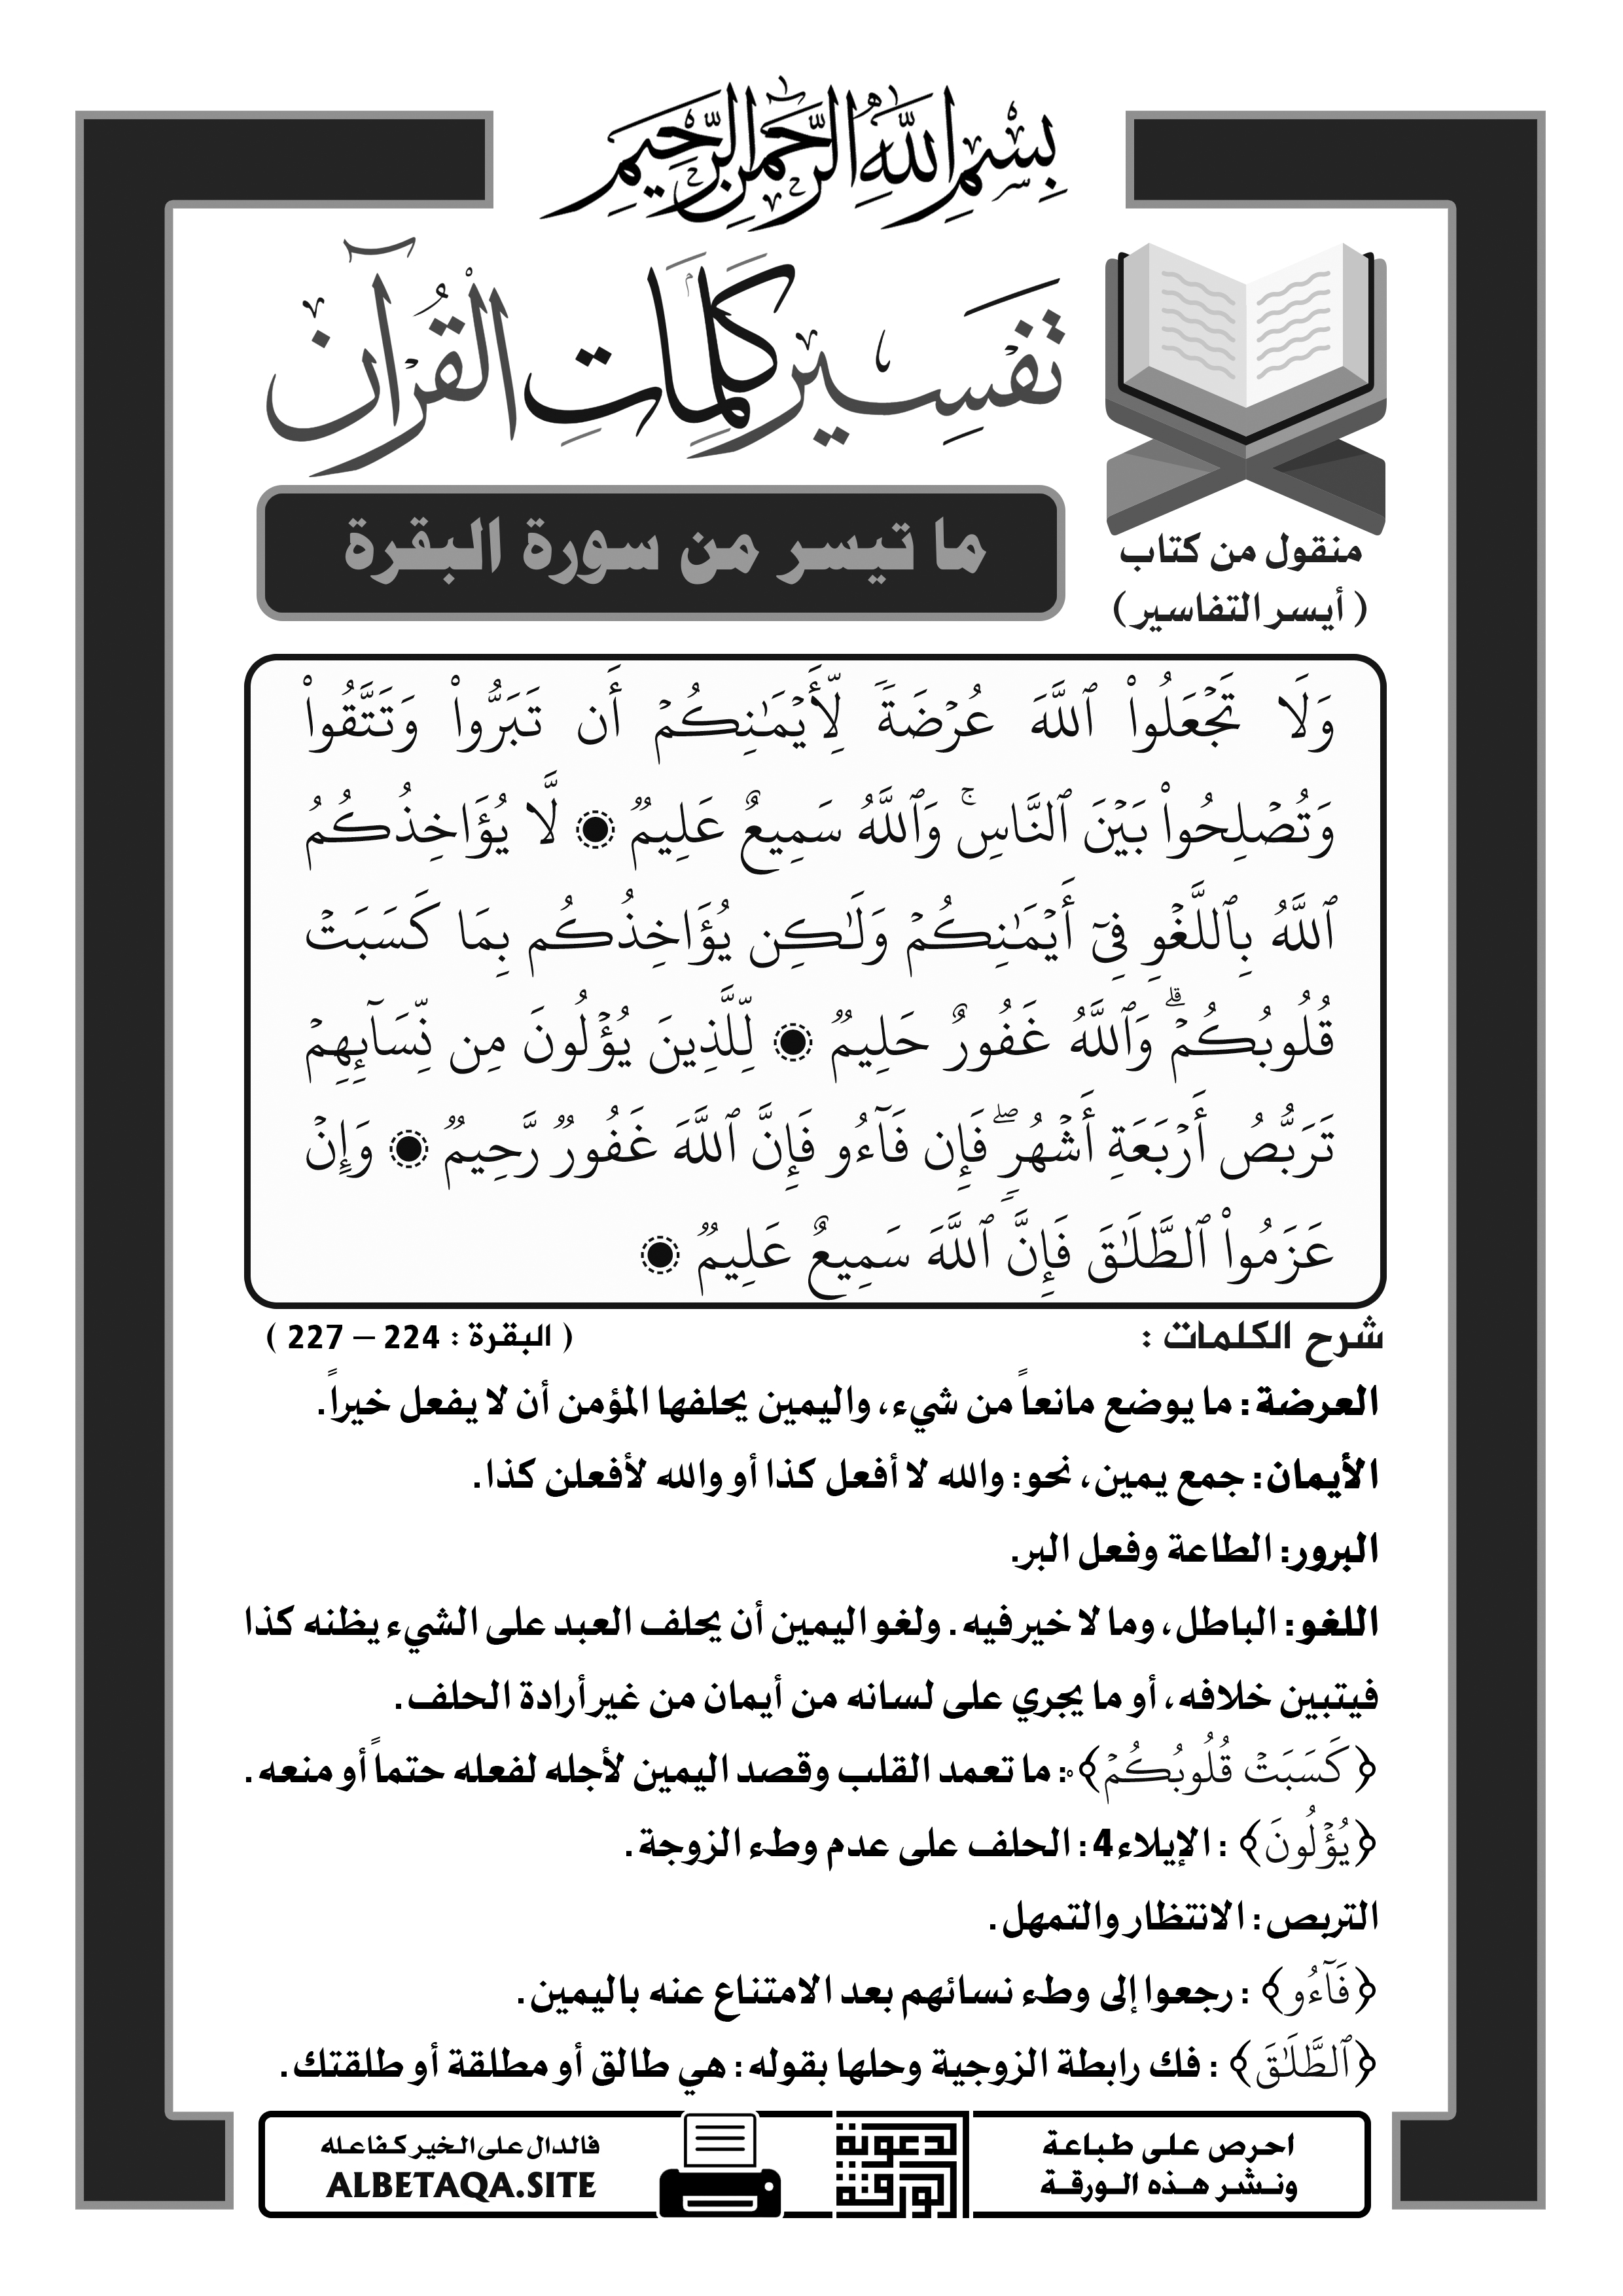 بِسْمِ اللَّهِ الرَّحْمَٰنِ الرَّحِيمِ
تَفْسِير كَلِمَاتِ القُرْآن
ما تيسر من سورة البقرة
منقول من كتاب
( أيسر التفاسير )
وَلَا تَجۡعَلُواْ ٱللَّهَ عُرۡضَةٗ لِّأَيۡمَٰنِكُمۡ أَن تَبَرُّواْ وَتَتَّقُواْ
وَتُصۡلِحُواْ بَيۡنَ ٱلنَّاسِۚ وَٱللَّهُ سَمِيعٌ عَلِيمٞ ۝ لَّا يُؤَاخِذُكُمُ
ٱللَّهُ بِٱللَّغۡوِ فِيٓ أَيۡمَٰنِكُمۡ وَلَٰكِن يُؤَاخِذُكُم بِمَا كَسَبَتۡ
قُلُوبُكُمۡۗ وَٱللَّهُ غَفُورٌ حَلِيمٞ ۝ لِّلَّذِينَ يُؤۡلُونَ مِن نِّسَآئِهِمۡ
تَرَبُّصُ أَرۡبَعَةِ أَشۡهُرٖۖ فَإِن فَآءُو فَإِنَّ ٱللَّهَ غَفُورٞ رَّحِيمٞ ۝ وَإِنۡ
عَزَمُواْ ٱلطَّلَٰقَ فَإِنَّ ٱللَّهَ سَمِيعٌ عَلِيمٞ ۝
شرح الكلمات :
( البقرة : 224 – 227 )
العرضة : ما يوضع مانعاً من شيء، واليمين يحلفها المؤمن أن لا يفعل خيراً .
الأيمان : جمع يمين، نحو: والله لا أفعل كذا أو والله لأفعلن كذا .
البرور: الطاعة وفعل البر.
اللغو : الباطل، وما لا خير فيه . ولغو اليمين أن يحلف العبد على الشيء يظنه كذا
فيتبين خلافه، أو ما يجري على لسانه من أيمان من غير أرادة الحلف .
﴿كَسَبَتۡ قُلُوبُكُمۡ﴾ : ما تعمد القلب وقصد اليمين لأجله لفعله حتماً أو منعه .
﴿يُؤۡلُونَ﴾ : الإيلاء4 : الحلف على عدم وطء الزوجة .
التربص : الانتظار والتمهل .
﴿فَآءُو﴾ : رجعوا إلى وطء نسائهم بعد الامتناع عنه باليمين .
﴿ٱلطَّلَٰقَ﴾ : فك رابطة الزوجية وحلها بقوله : هي طالق أو مطلقة أو طلقتك .
احرص على طباعة
ونشر هذه الورقة
فالدال على الخير كفاعله
ALBETAQA.SITE